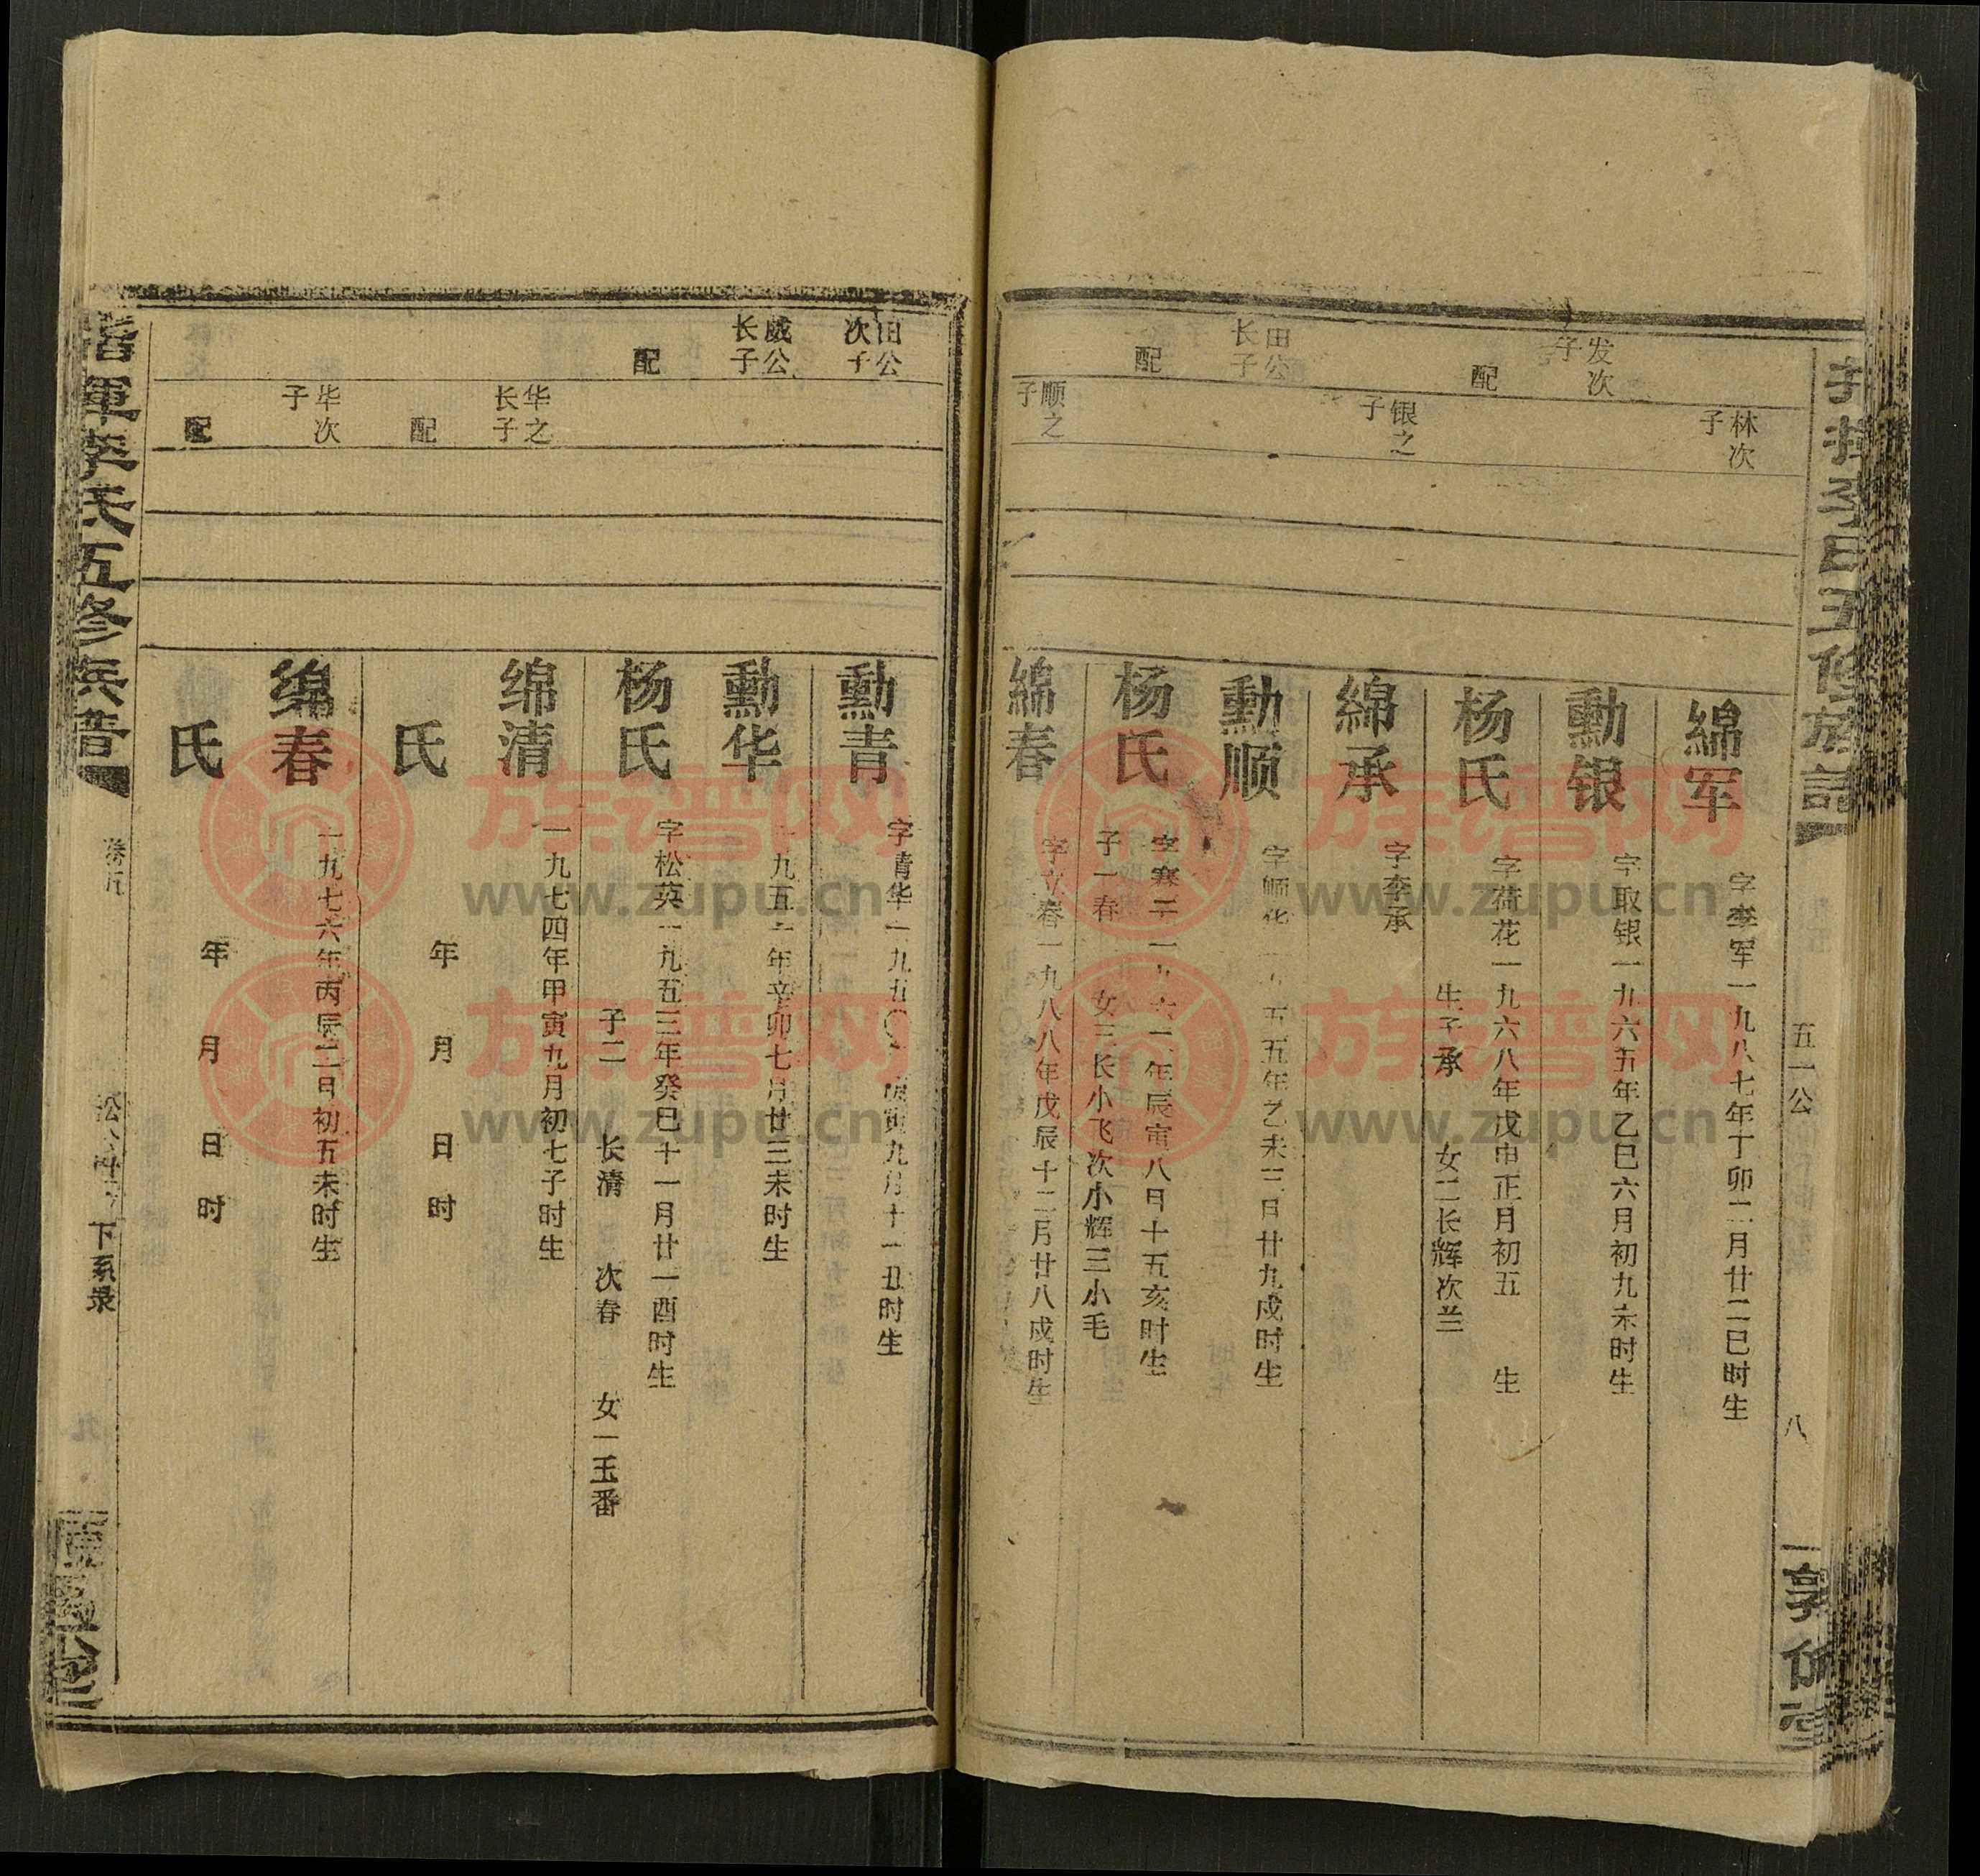 五一公
八
林次子
綿军
字李军一九八七年丁卯二月廿二巳时生
发次子
勳银
字取银一九六五年乙巳六月初九未时生
配
杨氏
字荷花一九六八年戊申正月初五 生
生子承 女二长辉次兰
银之子
綿承
字李承
田公长子
勳顺
五年乙未三月廿九戌时生
配
杨氏
年辰寅八日十五亥时生
子一春 女三长小飞次小辉三小毛
顺之子
綿春
春一九八八年戊辰十二月廿八戌时生
田公次子
勳青
字清华一九五〇 寅九月十一丑时生
威公长子
勳华
一九五一年辛卯七月廿三未时生
配
杨氏
字松英一九五三年癸巳十一月廿一酉时生
子二 长清 次春 女一玉番
华之长子
绵清
一九七四年甲寅九月初七子时生
配
氏
年 月 日 时
华次子
绵春
一九七六年丙辰二日初五未时生
配
氏
年 月 日 时
李氏五修族谱
卷五
下系录
族谱网
www.zupu.cn
族谱网
www.zupu.cn
族谱网
www.zupu.cn
族谱网
www.zupu.cn